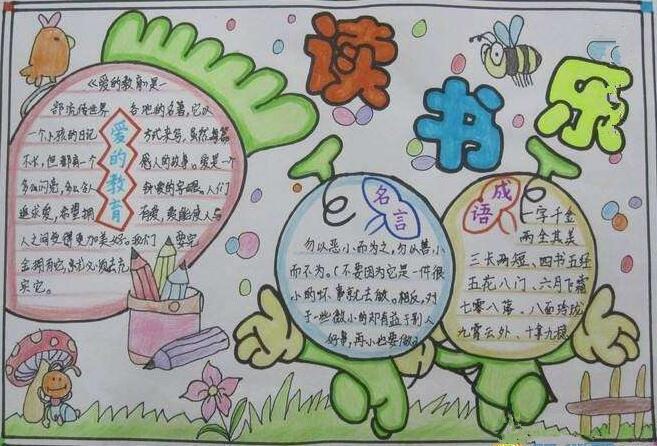 读书乐
《爱的教育》是一
部流传世界各地的名著,它以
一个小孩的日记方式来写,虽然篇幅
不长,但都有一个感人的故事。爱是一个
多么闪亮,多么令人钟爱的字眼,人们
追求爱,希望拥有爱,爱能使人与
人之间变得更加美好。我们要完
全拥有它,就必须去充
实它。
爱的教育
名言
勿以恶小而为之,勿以善小
而不为。(不要因为它是一件很
小的坏事就去做。相反,对
于一些微小的却有益于别人
好事,再小也要做)
成语
一字千金
两全其美
三长两短、四书五经
五花八门、六月飞霜
七零八落、八面玲珑
九霄云外、十拿九稳